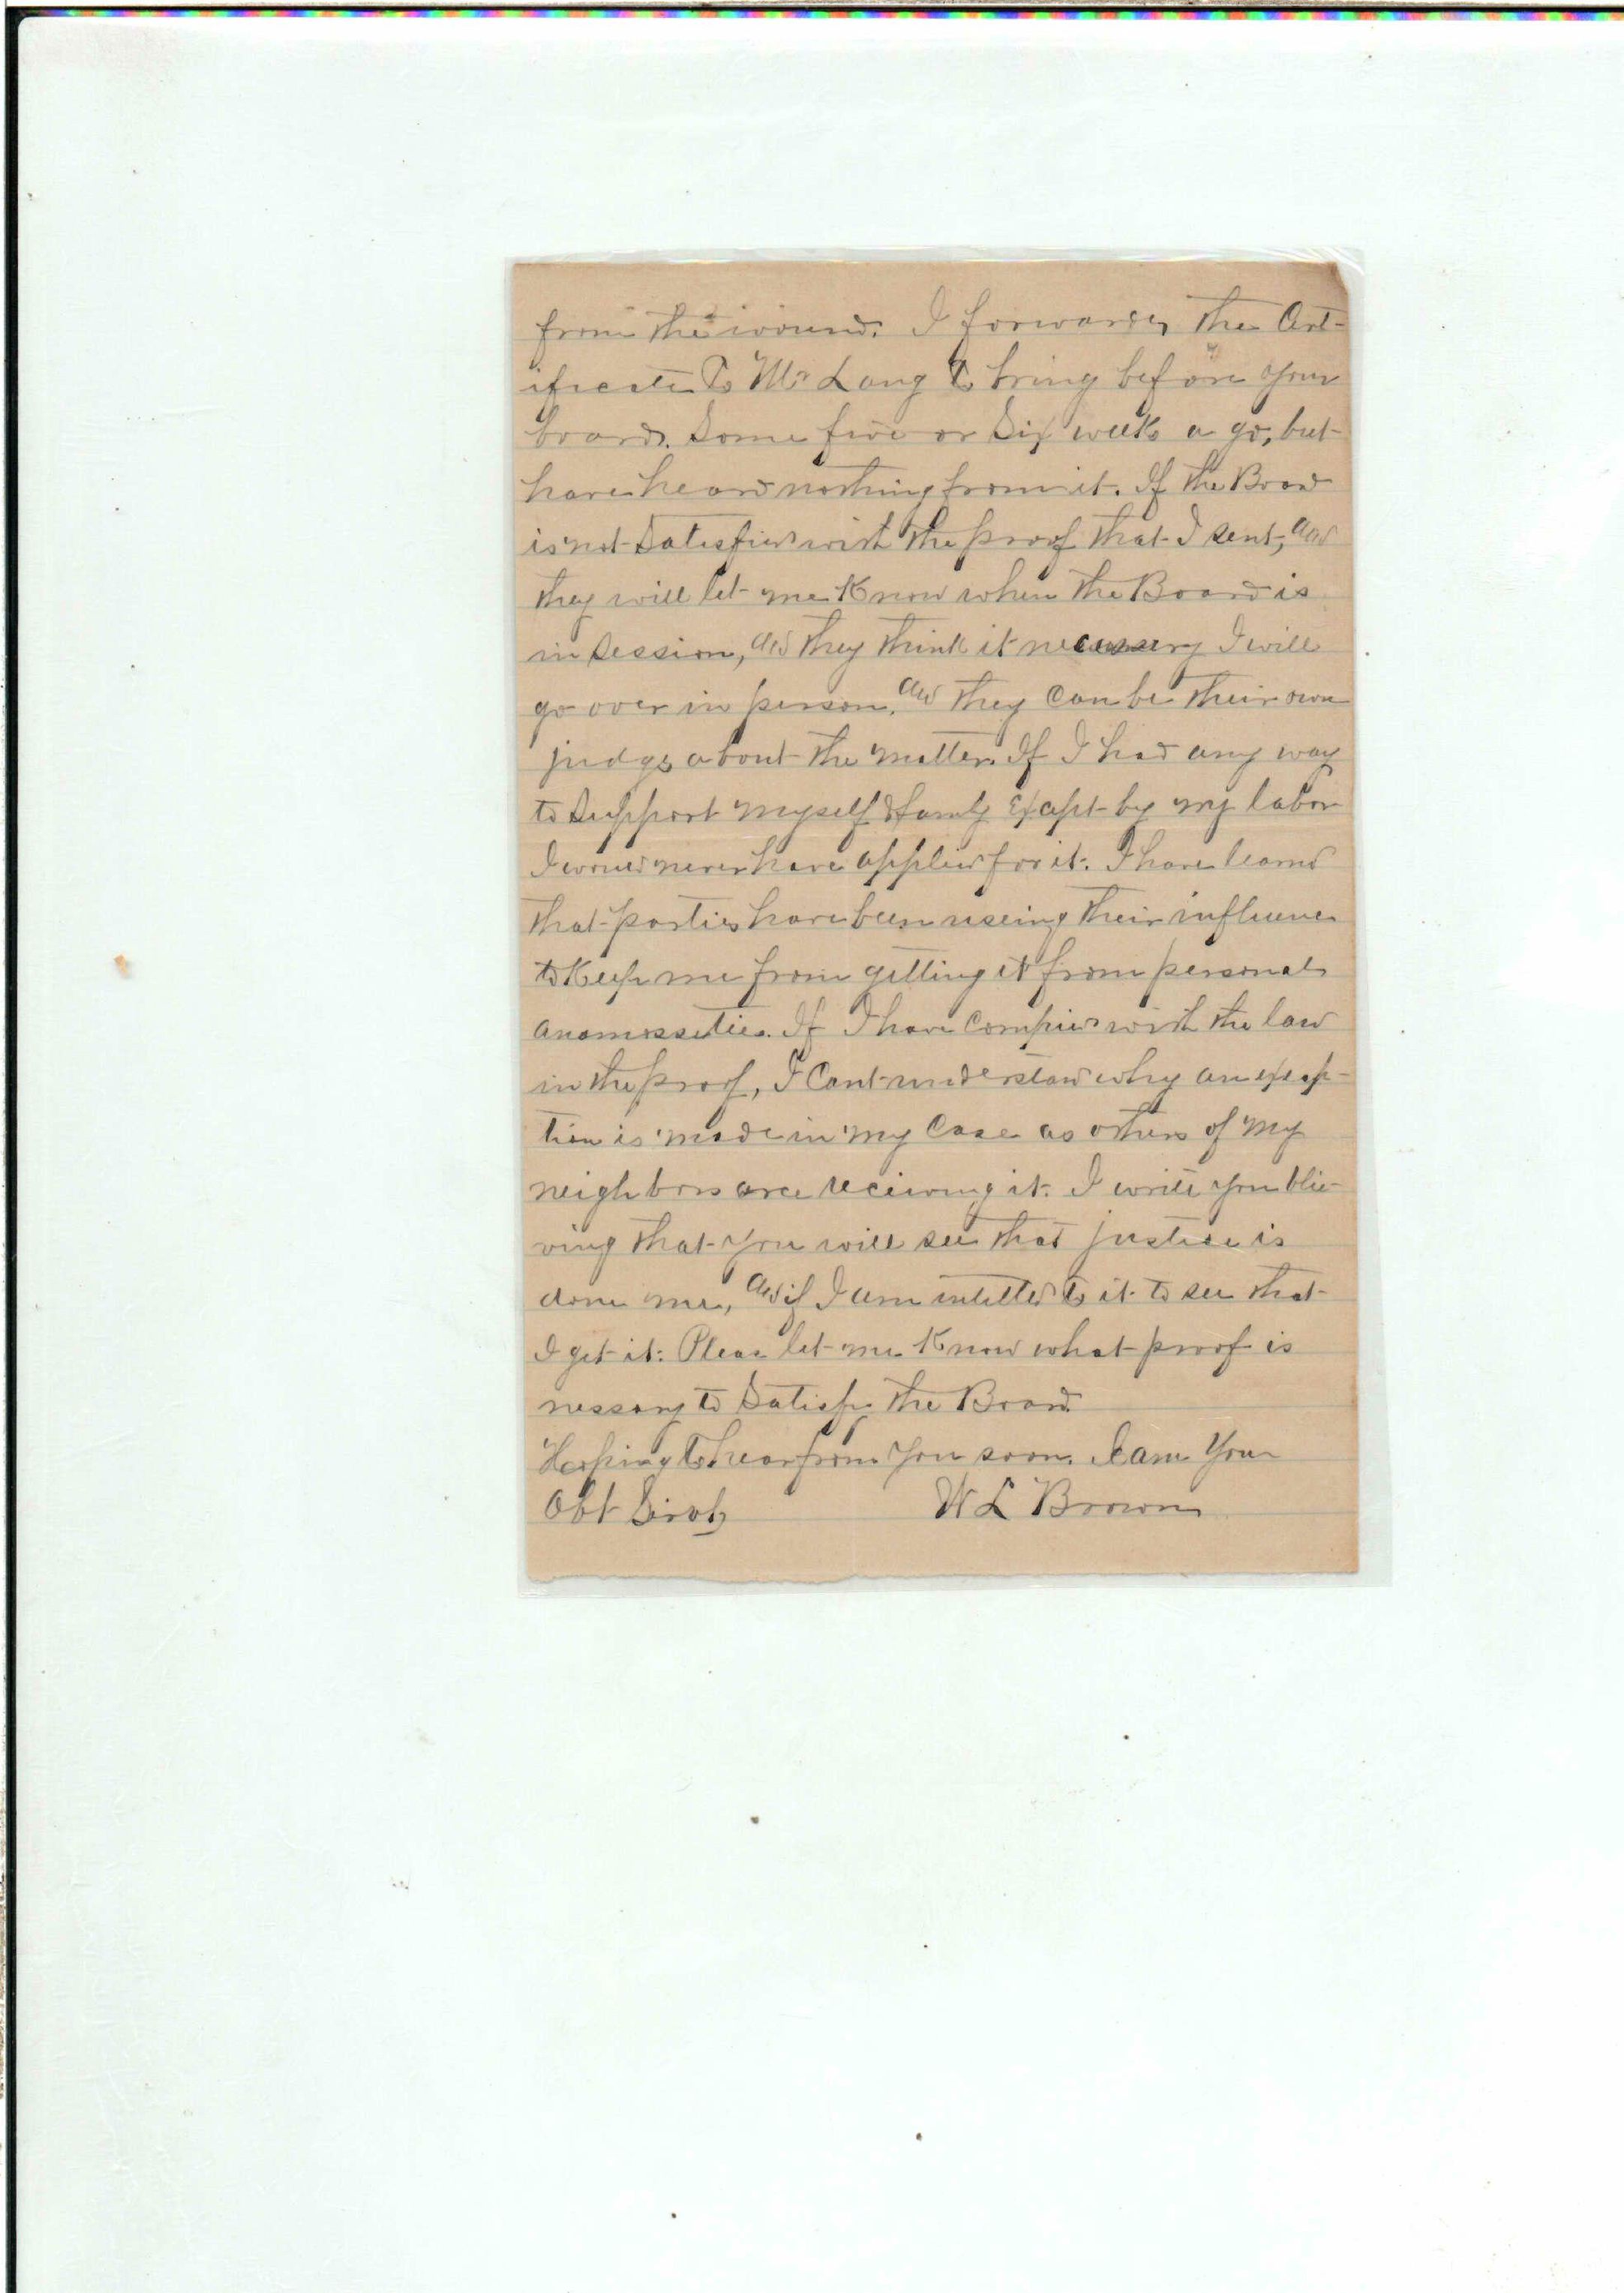 from the wound. I forwarded the Cirt-
ificate To Mr Lang to bring before your
board. Some five or Six weeks a go, but
have heard nothing from it. If the Board
is not Satisfied with the proof that I sent, and
they will let me Know when the Board is
in Session, and they think it necessery I will
go over in person, and they can be their own
judge about the matter. If I had any way
to Support myself & famly Exapt by my labor
I would never have applied for it. I have learnd
that parties have been useing their influence
to Keep me from getting it from personal
anamossities. If I have Complied with the law
in the proof, I Cant understand why an exep-
tion is made in my Case as others of my
neighbors are receiving it. I write you blie-
ving that you will see that justice is
done me, and if I am intitled to it to see that
I get it. Pleas let me Know what proof is
nessary to Satisfy the Board.
Hoping to hear from you soon. I am Your
Obt Sirvt W L Brown